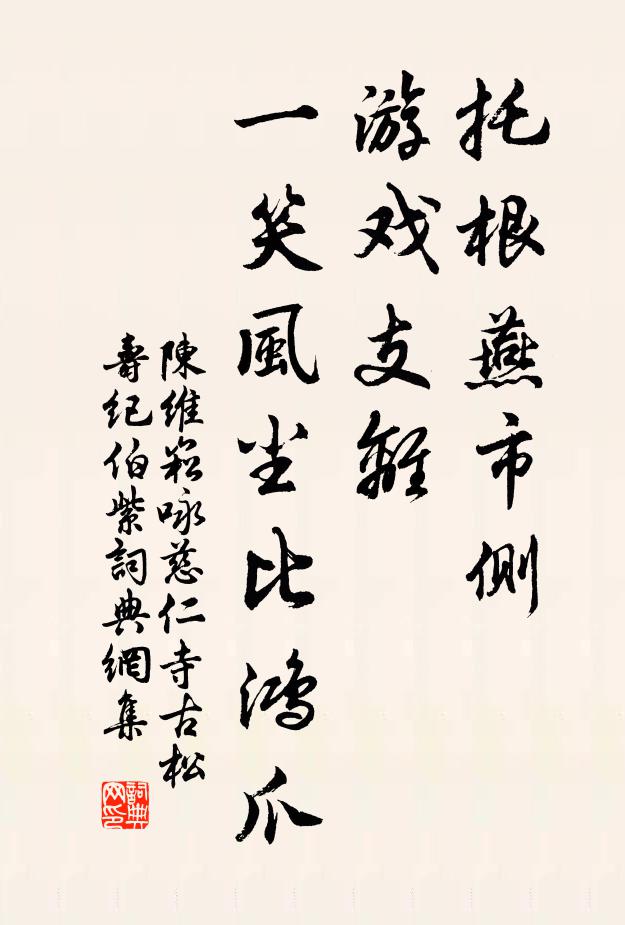 托根燕市側
游戏支離
一笑風尘比鴻爪
陳維崧咏慈仁寺古松
壽紀伯紫詞典網集
詞典网印